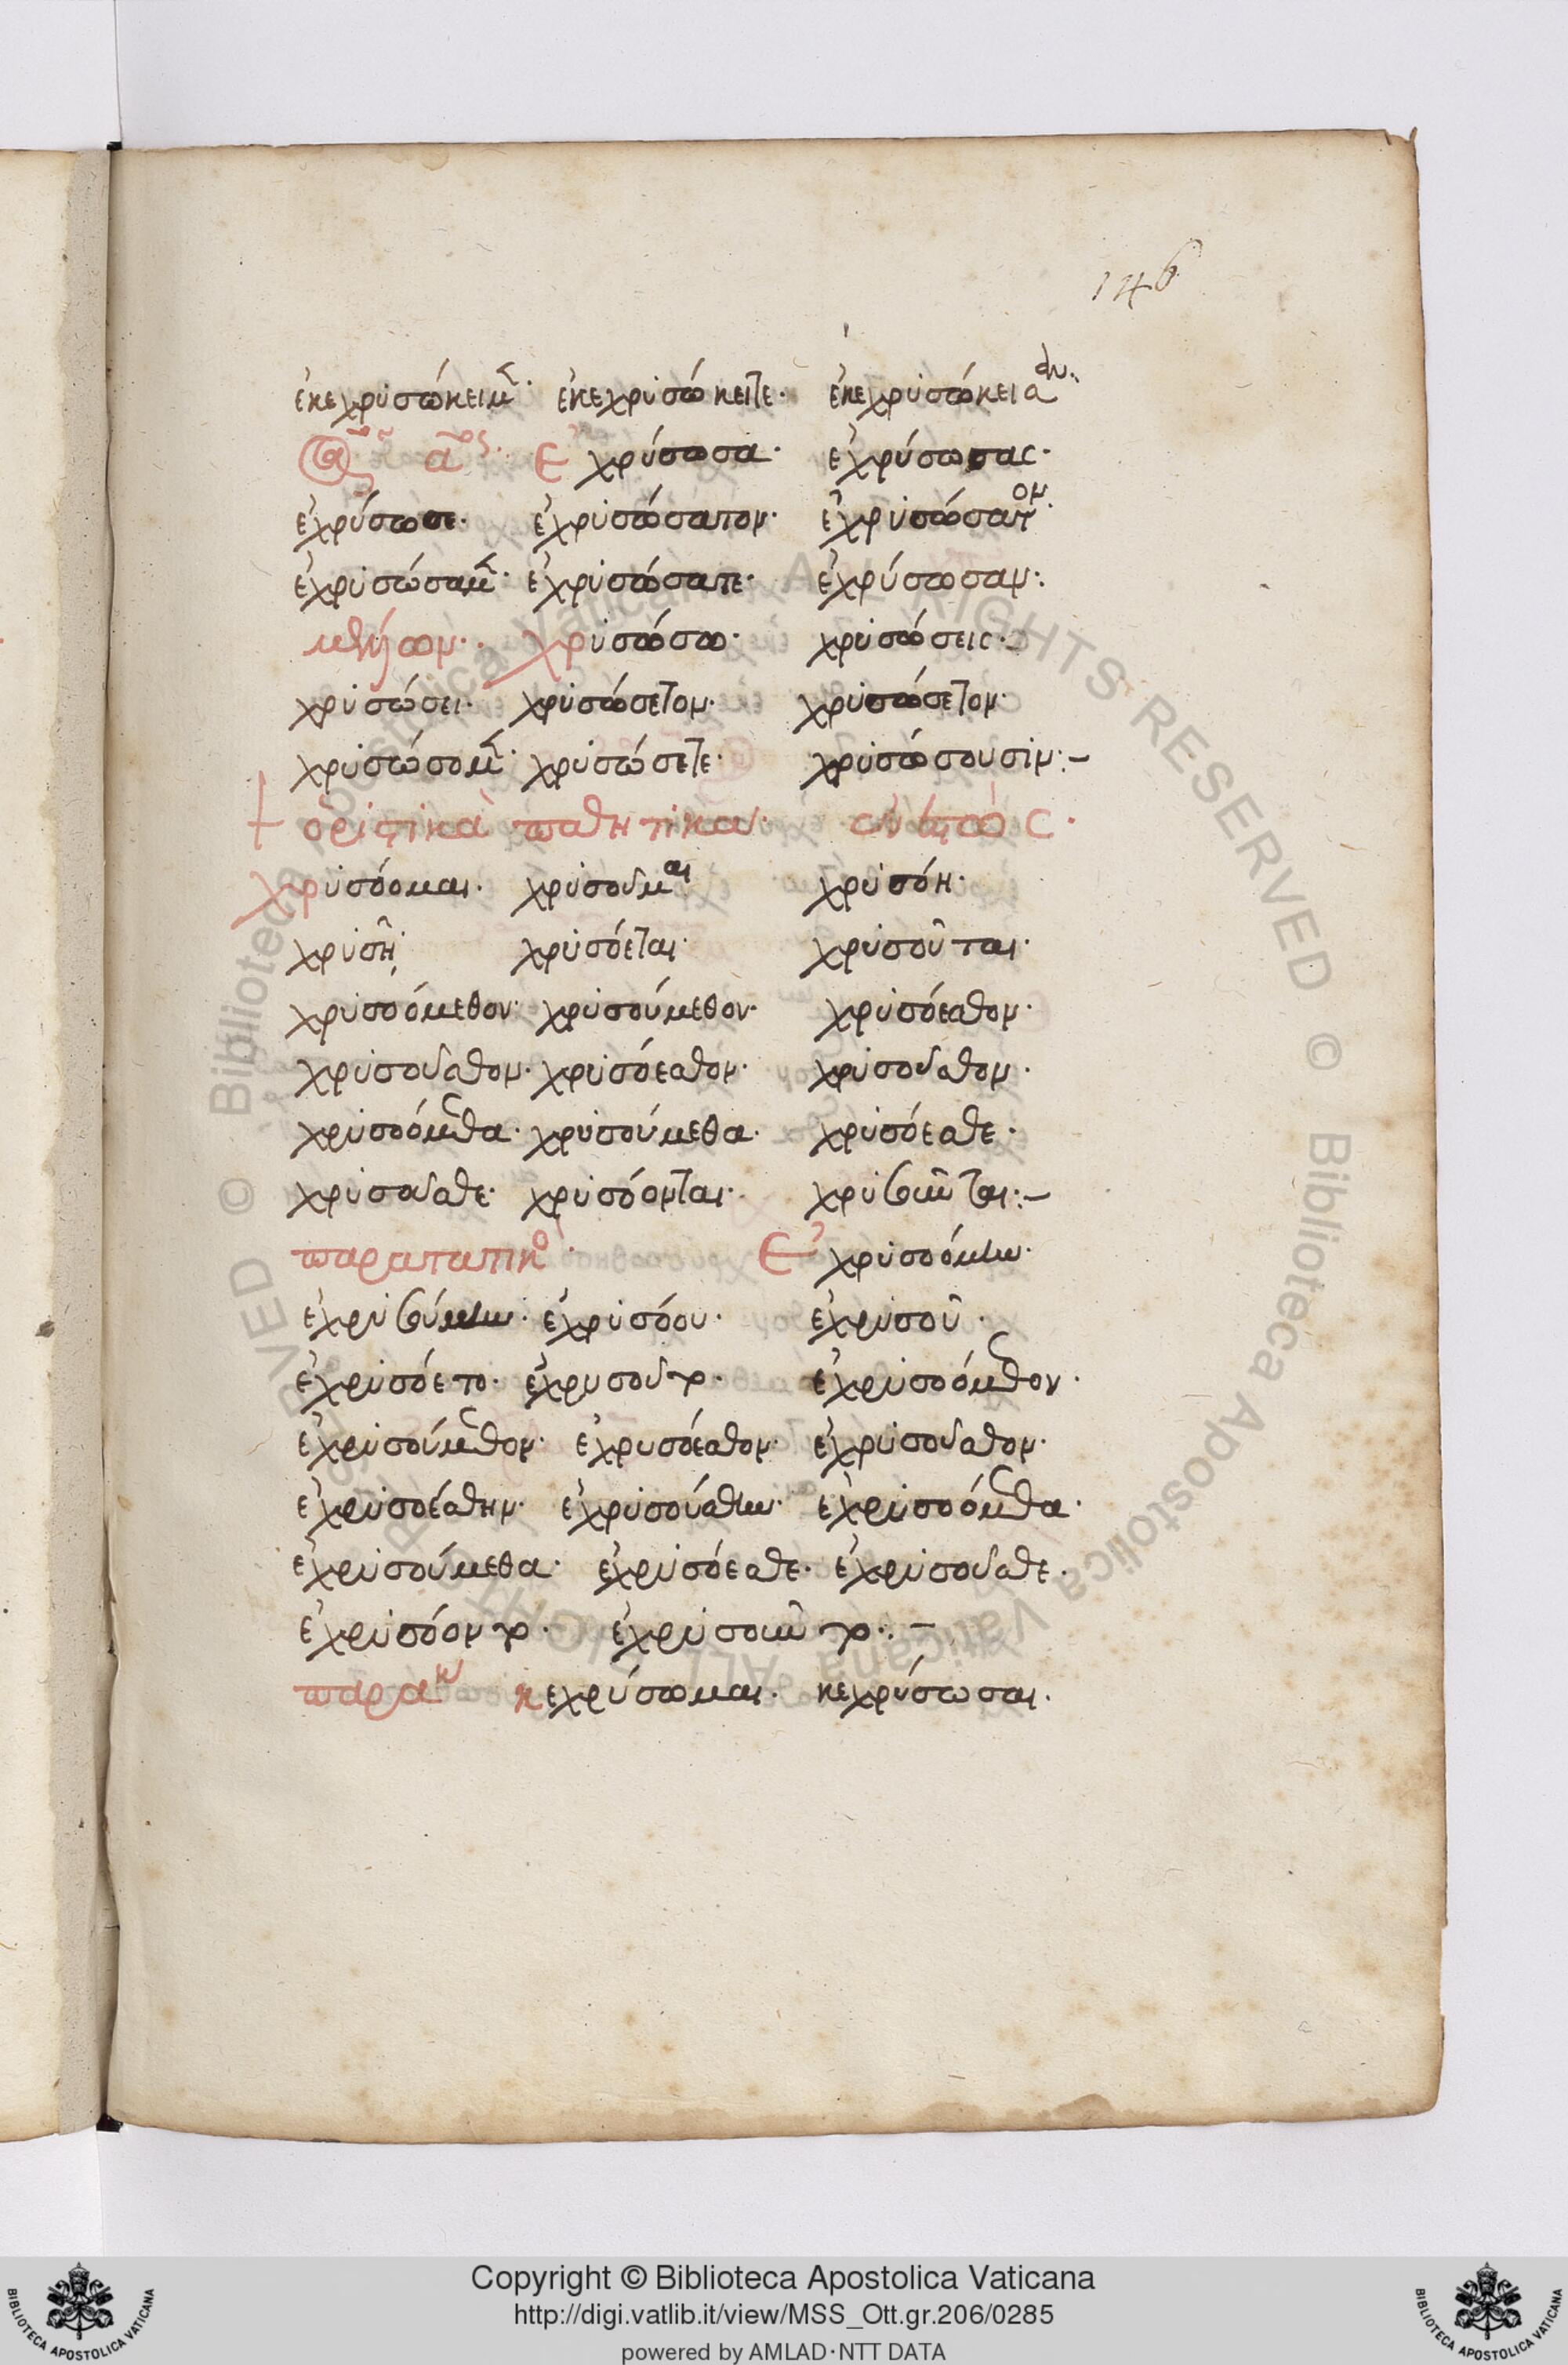 146
ἐκεχρυσώκειμ̃· ἐκεχρυσώκειτε· ἐκεχρυσώκεισαν·
ἐχρύσωσα· ἐχρύσωσας·
ἐχρύσωσε· ἐχρυσώσατον· ἐχρυσώσατον·
ἐχρυσώσαμ̃· ἐχρυσώσατε· ἐχρύσωσαν:
μέλλων· χρυσώσω· χρυσώσεις·
χρυσώσει· χρυσώσετον· χρυσώσετον·
χρυσώσομ̃· χρυσώσετε· χρυσώσουσιν:–
ὁριστικὰ παθητικα· ἐνεστὼς·
χρυσόομαι· χρυσοῦμαι χρυσόη·
χρυσῆ· χρυσόεται· χρυσοῦται·
χρυσοόμεθον· χρυσούμεθον· χρυσόεσθον·
χρυσοῦσθον· χρυσόεσθον· χρυσοῦσθον·
χρυσοόμεθα· χρυσούμεθα· χρυσόεσθε·
χρυσοῦσθε· χρυσόονται· χρυσοῦνται:–
παρατατικὸ· ἐχρυσοόμην·
ἐχρυσούμην· ἐχρυσόου· ἐχρυσοῦ·
ἐχρυσόετο· ἐχρυσοῦτο· ἐχρυσοόμεθον·
ἐχρυσούμεθον· ἐχρυσόεσθον· ἐχρυσοῦσθον·
ἐχρυσοέσθην· ἐχρυσούσθην· ἐχρυσοόμεθα·
ἐχρυσούμεθα· ἐχρυσόεσθε· ἐχρυσοῦσθε·
ἐχρυσόοντο· ἐχρυσοῦντο:–
παρακ κεχρύσωμαι· κεχρύσωσαι·
© Biblioteca Apostolica Vaticana ALL RIGHTS RESERVED
Copyright © Biblioteca Apostolica Vaticana
http://digi.vatlib.it/view/MSS_Ott.gr.206/0285
powered by AMLAD·NTT DATA
BIBLIOTECA APOSTOLICA VATICANA
BIBLIOTECA APOSTOLICA VATICANA